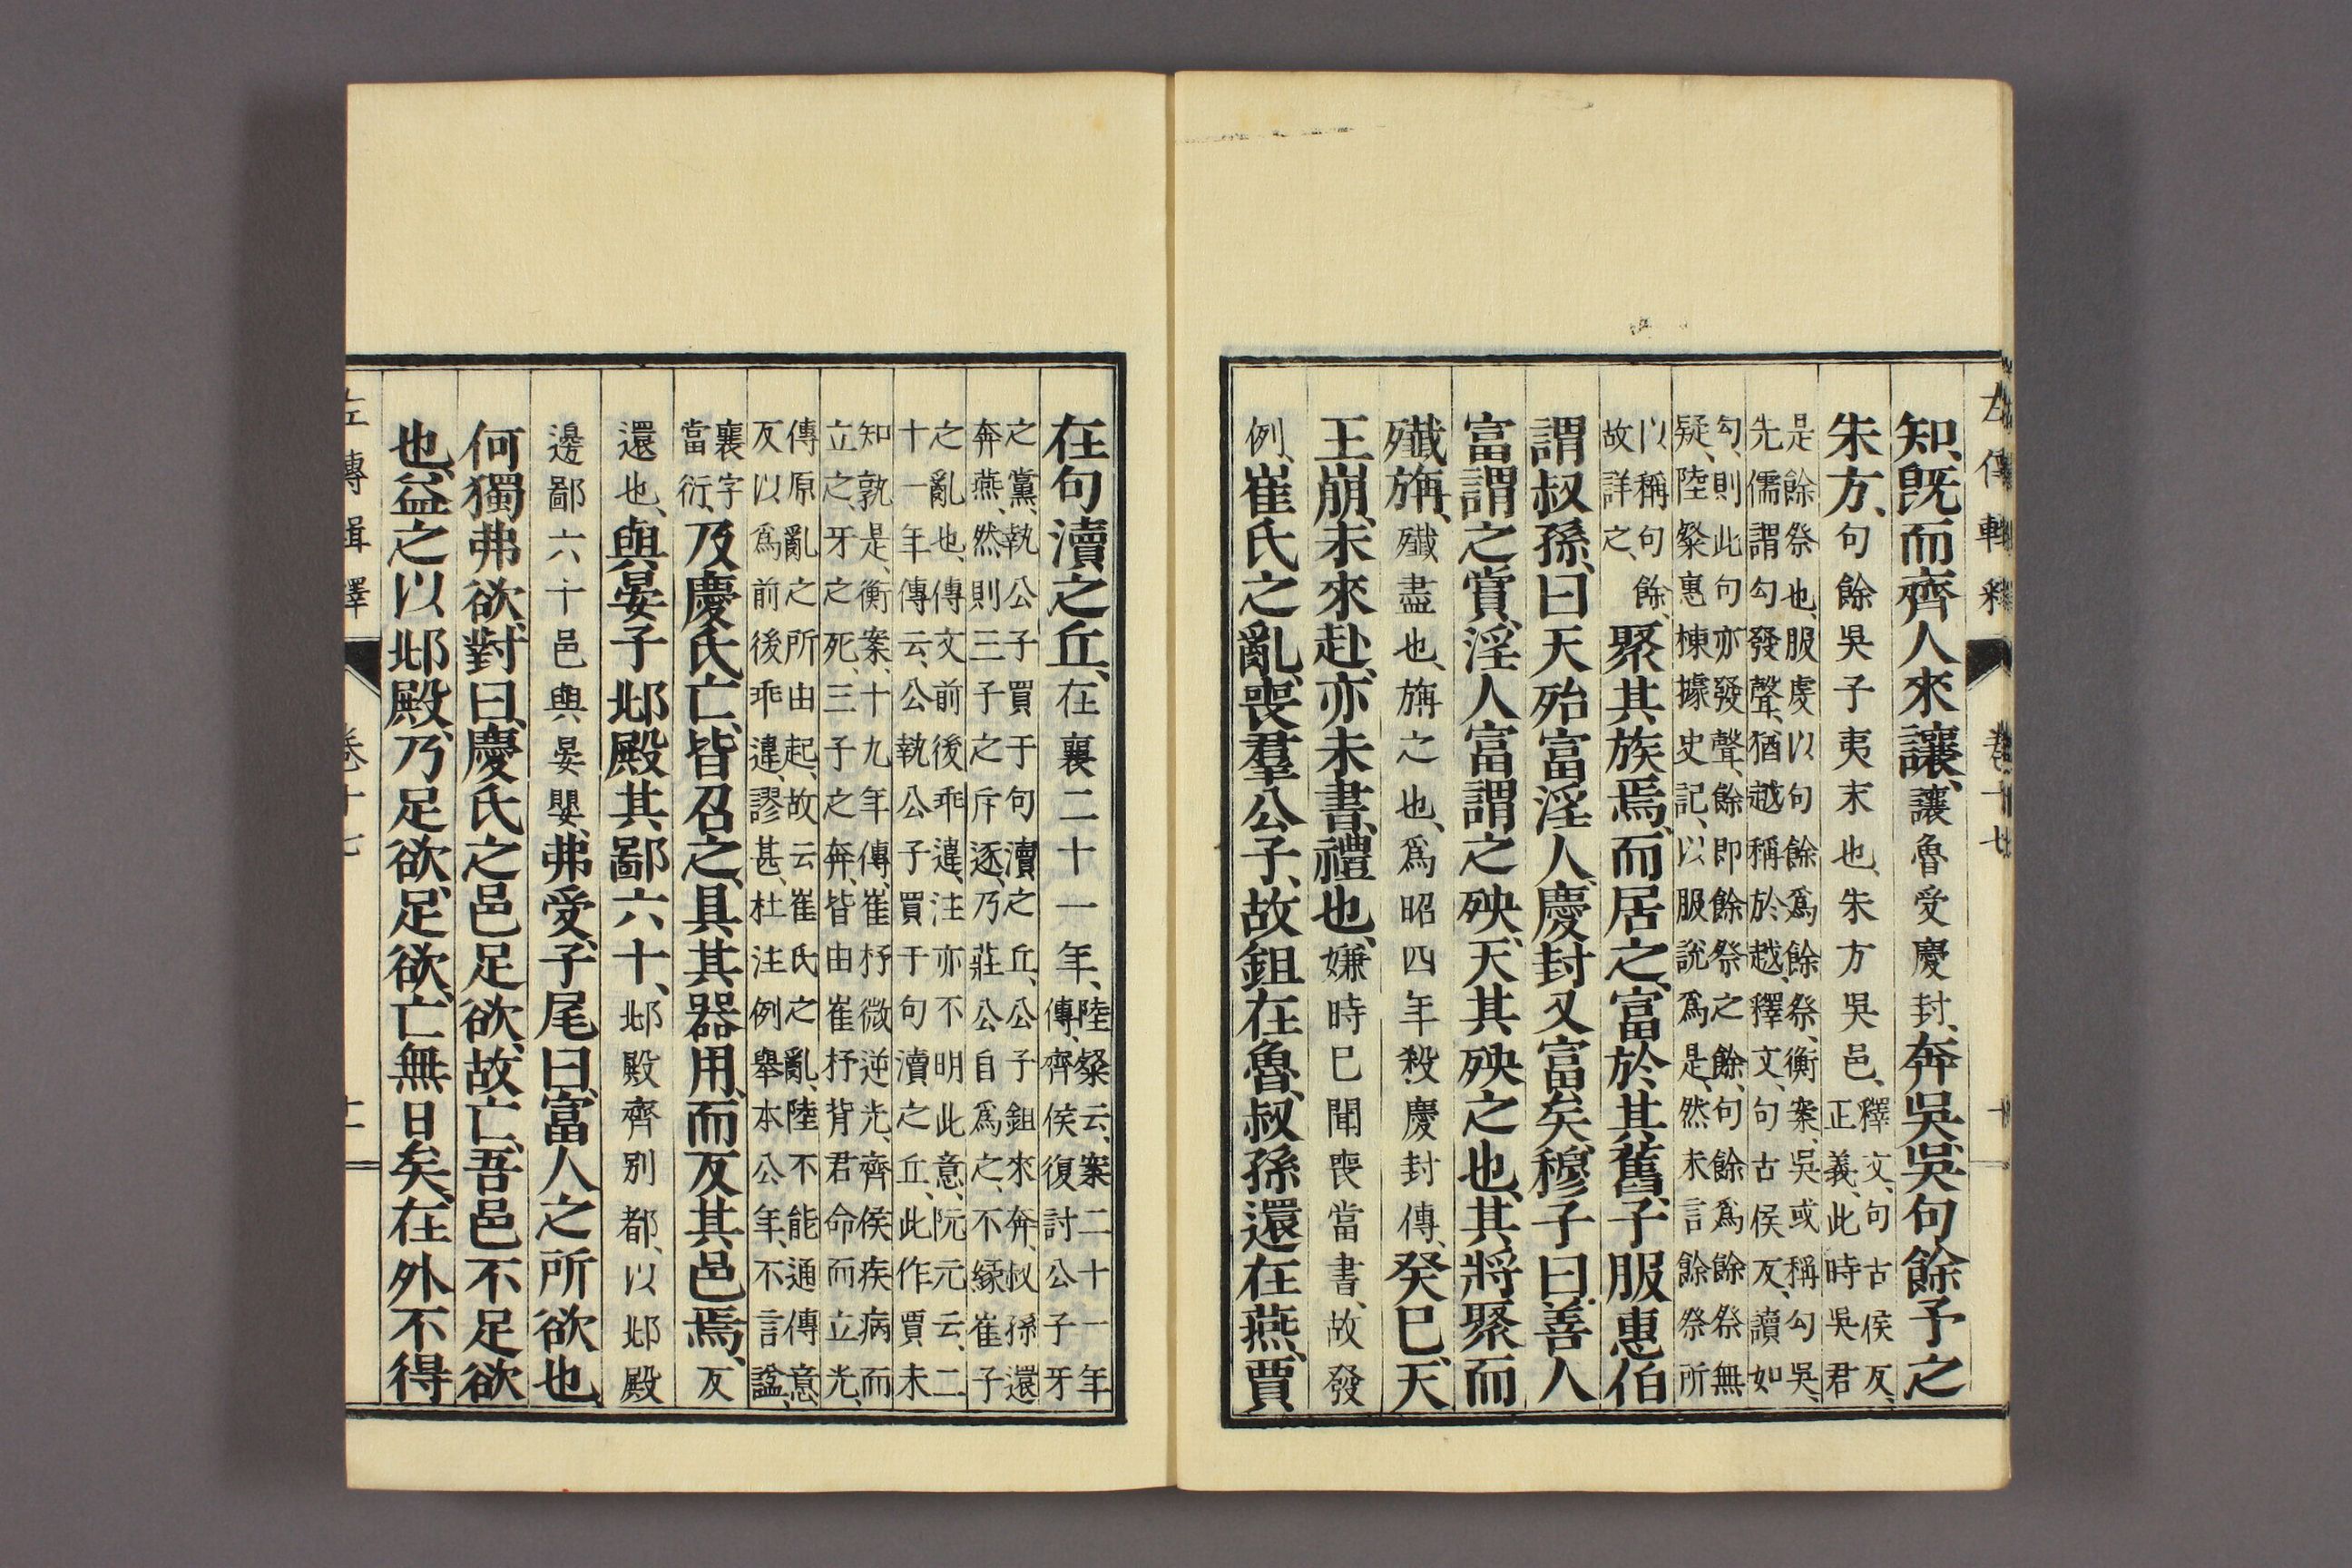 左傳輯釋 卷十七 十
知、既而齊人來讓、讓魯受慶封、奔吳、吳句餘予之
朱方、句餘吳子夷末也、朱方吳邑、釋文、句古侯反、正義、此時吳君
是餘祭也、服虔以句餘爲餘祭、衡案、吳或稱勾吳、
先儒謂勾發聲、猶越稱於越、釋文、句古侯反、讀如
勾、則此句亦發聲、餘即餘祭之餘、句餘爲餘祭無
疑、陸粲惠棟據史記、以服說爲是、然未言餘祭所
以稱句餘、故詳之、聚其族焉、而居之、富於其舊、子服惠伯
謂叔孫、曰天殆富淫人、慶封又富矣、穆子曰、善人
富謂之賞、淫人富謂之殃、天其殃之也、其將聚而
殲旃、殲盡也、旃之也、爲昭四年殺慶封傳、癸巳、天
王崩、未來赴、亦未書、禮也、嫌時已聞喪當書、故發
例、崔氏之亂、喪羣公子、故鉏在魯、叔孫還在燕、賈
在句瀆之丘、在襄二十一年、陸粲云、案二十一年傳、齊侯復討公子牙
之黨、執公子買于句瀆之丘、公子鉏來奔、叔孫還
奔燕、然則三子之斥逐、乃莊公自爲之、不緣崔子
之亂也、傳文前後乖違、注亦不明此意、阮元云、二
十一年傳云、公執公子買于句瀆之丘、此作賈未
知孰是、衡案、十九年傳、崔杼微逆光、齊侯疾病而
立之、牙之死、三子之奔、皆由崔杼背君命而立光、
傳原亂之所由起、故云崔氏之亂、陸不能通傳意、
反以爲前後乖違、謬甚、杜注例舉本公年、不言諡、
襄字當衍、及慶氏亡、皆召之、具其器用、而反其邑焉、反
還也、與晏子邶殿其鄙六十、邶殿齊別都、以邶殿
邊鄙六十邑與晏嬰、弗受、子尾曰、富人之所欲也
何獨弗欲、對曰、慶氏之邑足欲、故亡、吾邑不足欲
也、益之以邶殿、乃足欲、足欲、亡無日矣、在外不得
左傳輯釋 卷十七 十一